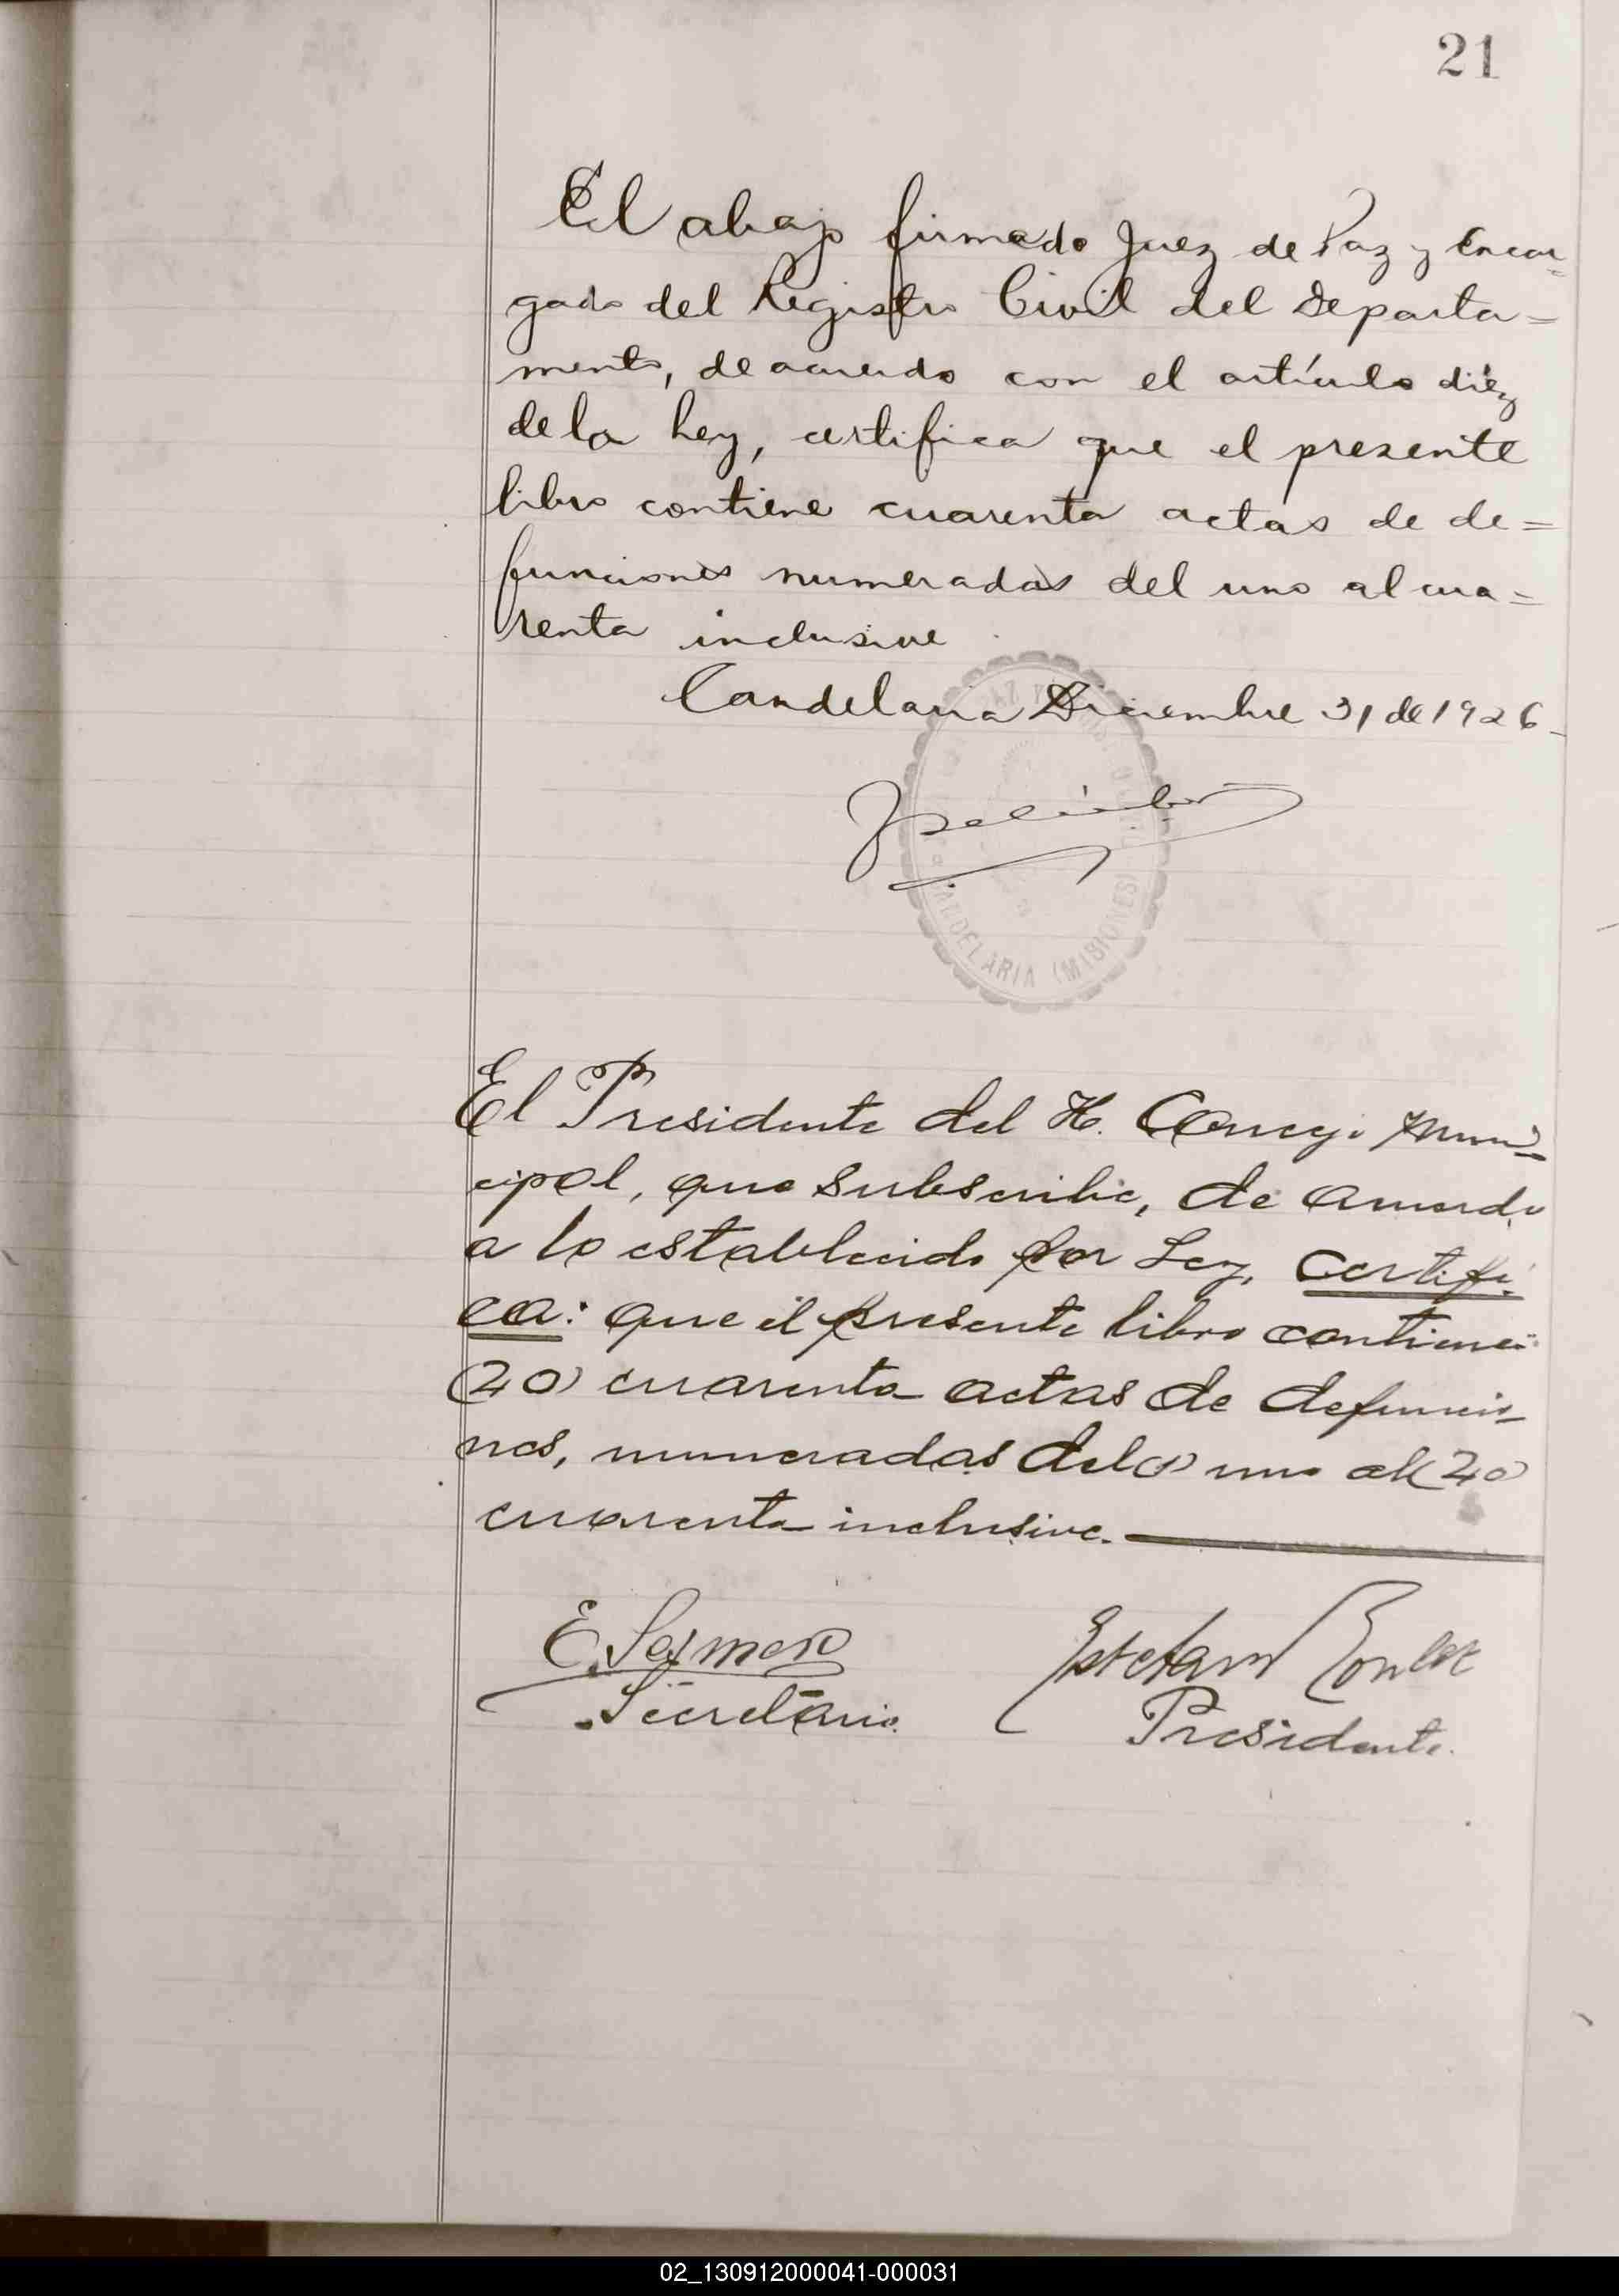 21
El abajo firmado Juez de Paz y Encar-
gado del Registro Civil del Departa=
mento, de acuerdo con el artículo diez
de la Ley, certifica que el presente
libro contiene cuarenta actas de de=
funciones numeradas del uno al cua=
renta inclusive
Candelaria Diciembre 31 de 1926
CANDELARIA (MISIONES)
El Presidente del H. Concejo Muni-
cipal, que subscribe, de acuerdo
a lo establecido por Ley, Certifi-
ca: que el presente libro contiene
(40) cuarenta actas de defuncio-
nes, numeradas del (1) uno al (40)
cuarenta inclusive.
E.
Secretario.
Presidente.
02_130912000041-000031